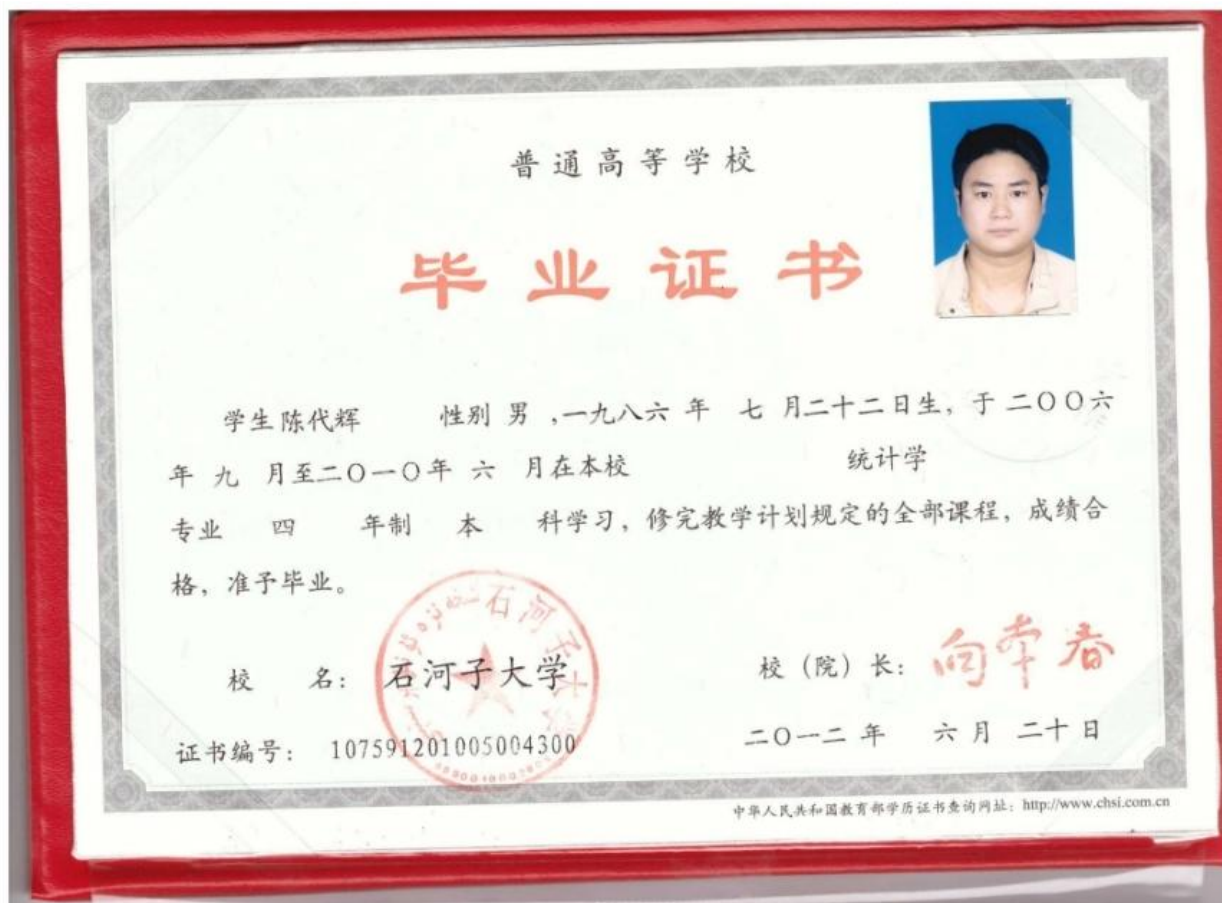 普通高等学校
毕业证书
学生 陈代辉 性别 男 ,一九八六 年 七 月二十二日生, 于 二〇〇六
年 九 月至二〇一〇年 六 月在本校 统计学
专业 四 年制 本 科学习, 修完教学计划规定的全部课程, 成绩合
格, 准予毕业。
石河子大学
校 名: 石河子大学
校 (院) 长: 向本春
证书编号: 107591201005004300
二〇一二 年 六 月 二十 日
中华人民共和国教育部学历证书查询网址: http://www.chsi.com.cn